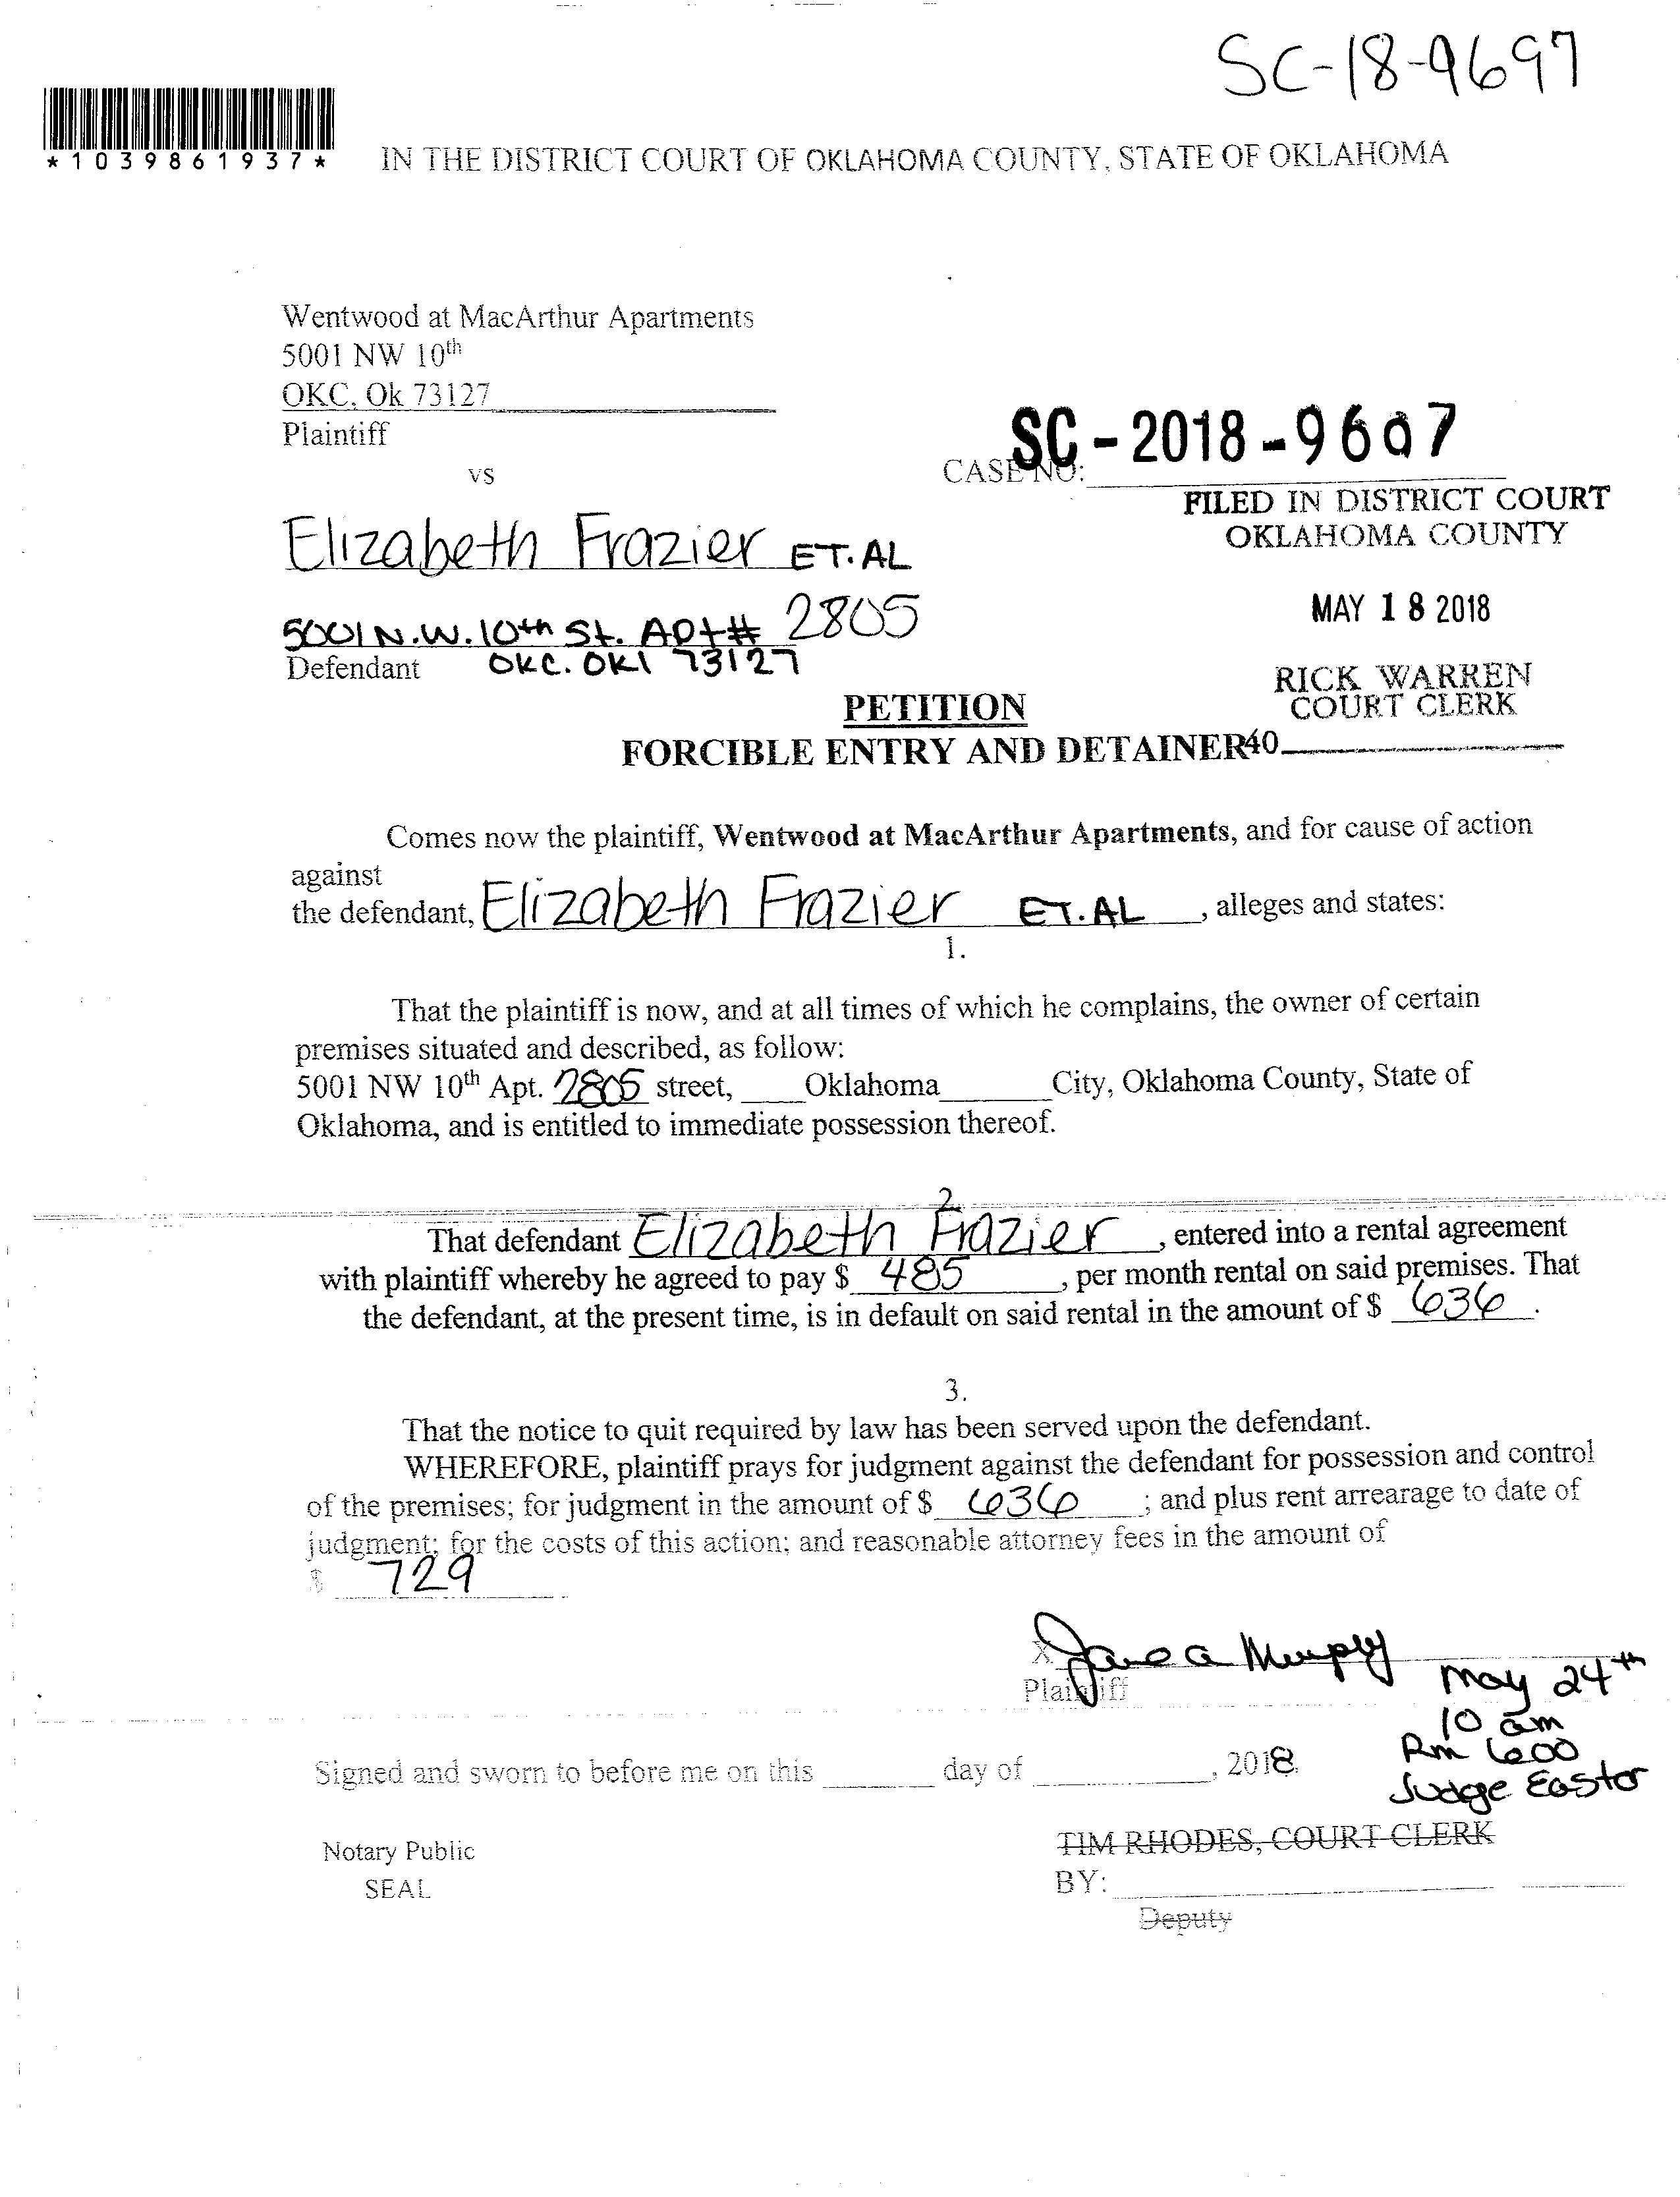 SC-18-9697
*1039861937*
IN THE DISTRICT COURT OF OKLAHOMA COUNTY, STATE OF OKLAHOMA
Wentwood at MacArthur Apartments
5001 NW 10th
OKC, Ok 73127
Plaintiff
vs
CASE NO: SC-2018-9607
FILED IN DISTRICT COURT
OKLAHOMA COUNTY
Elizabeth Frazier ET.AL
MAY 18 2018
5001 N.W. 10th St. Apt# 2805
Defendant OKC. OKl 73127
RICK WARREN
COURT CLERK
PETITION
FORCIBLE ENTRY AND DETAINER
40
Comes now the plaintiff, Wentwood at MacArthur Apartments, and for cause of action
against
the defendant, Elizabeth Frazier ET.AL, alleges and states:
1.
That the plaintiff is now, and at all times of which he complains, the owner of certain
premises situated and described, as follow:
5001 NW 10th Apt. 2805 street, Oklahoma City, Oklahoma County, State of
Oklahoma, and is entitled to immediate possession thereof.
2
That defendant Elizabeth Frazier, entered into a rental agreement
with plaintiff whereby he agreed to pay $ 485, per month rental on said premises. That
the defendant, at the present time, is in default on said rental in the amount of $ 636.
3.
That the notice to quit required by law has been served upon the defendant.
WHEREFORE, plaintiff prays for judgment against the defendant for possession and control
of the premises; for judgment in the amount of $ 636; and plus rent arrearage to date of
judgment; for the costs of this action; and reasonable attorney fees in the amount of
$ 729
X Jane a Murphy
Plaintiff
May 24th
10 am
Rm 600
Judge Easter
Signed and sworn to before me on this ____ day of ____, 2018.
TIM RHODES, COURT CLERK
Notary Public
BY:
SEAL
Deputy